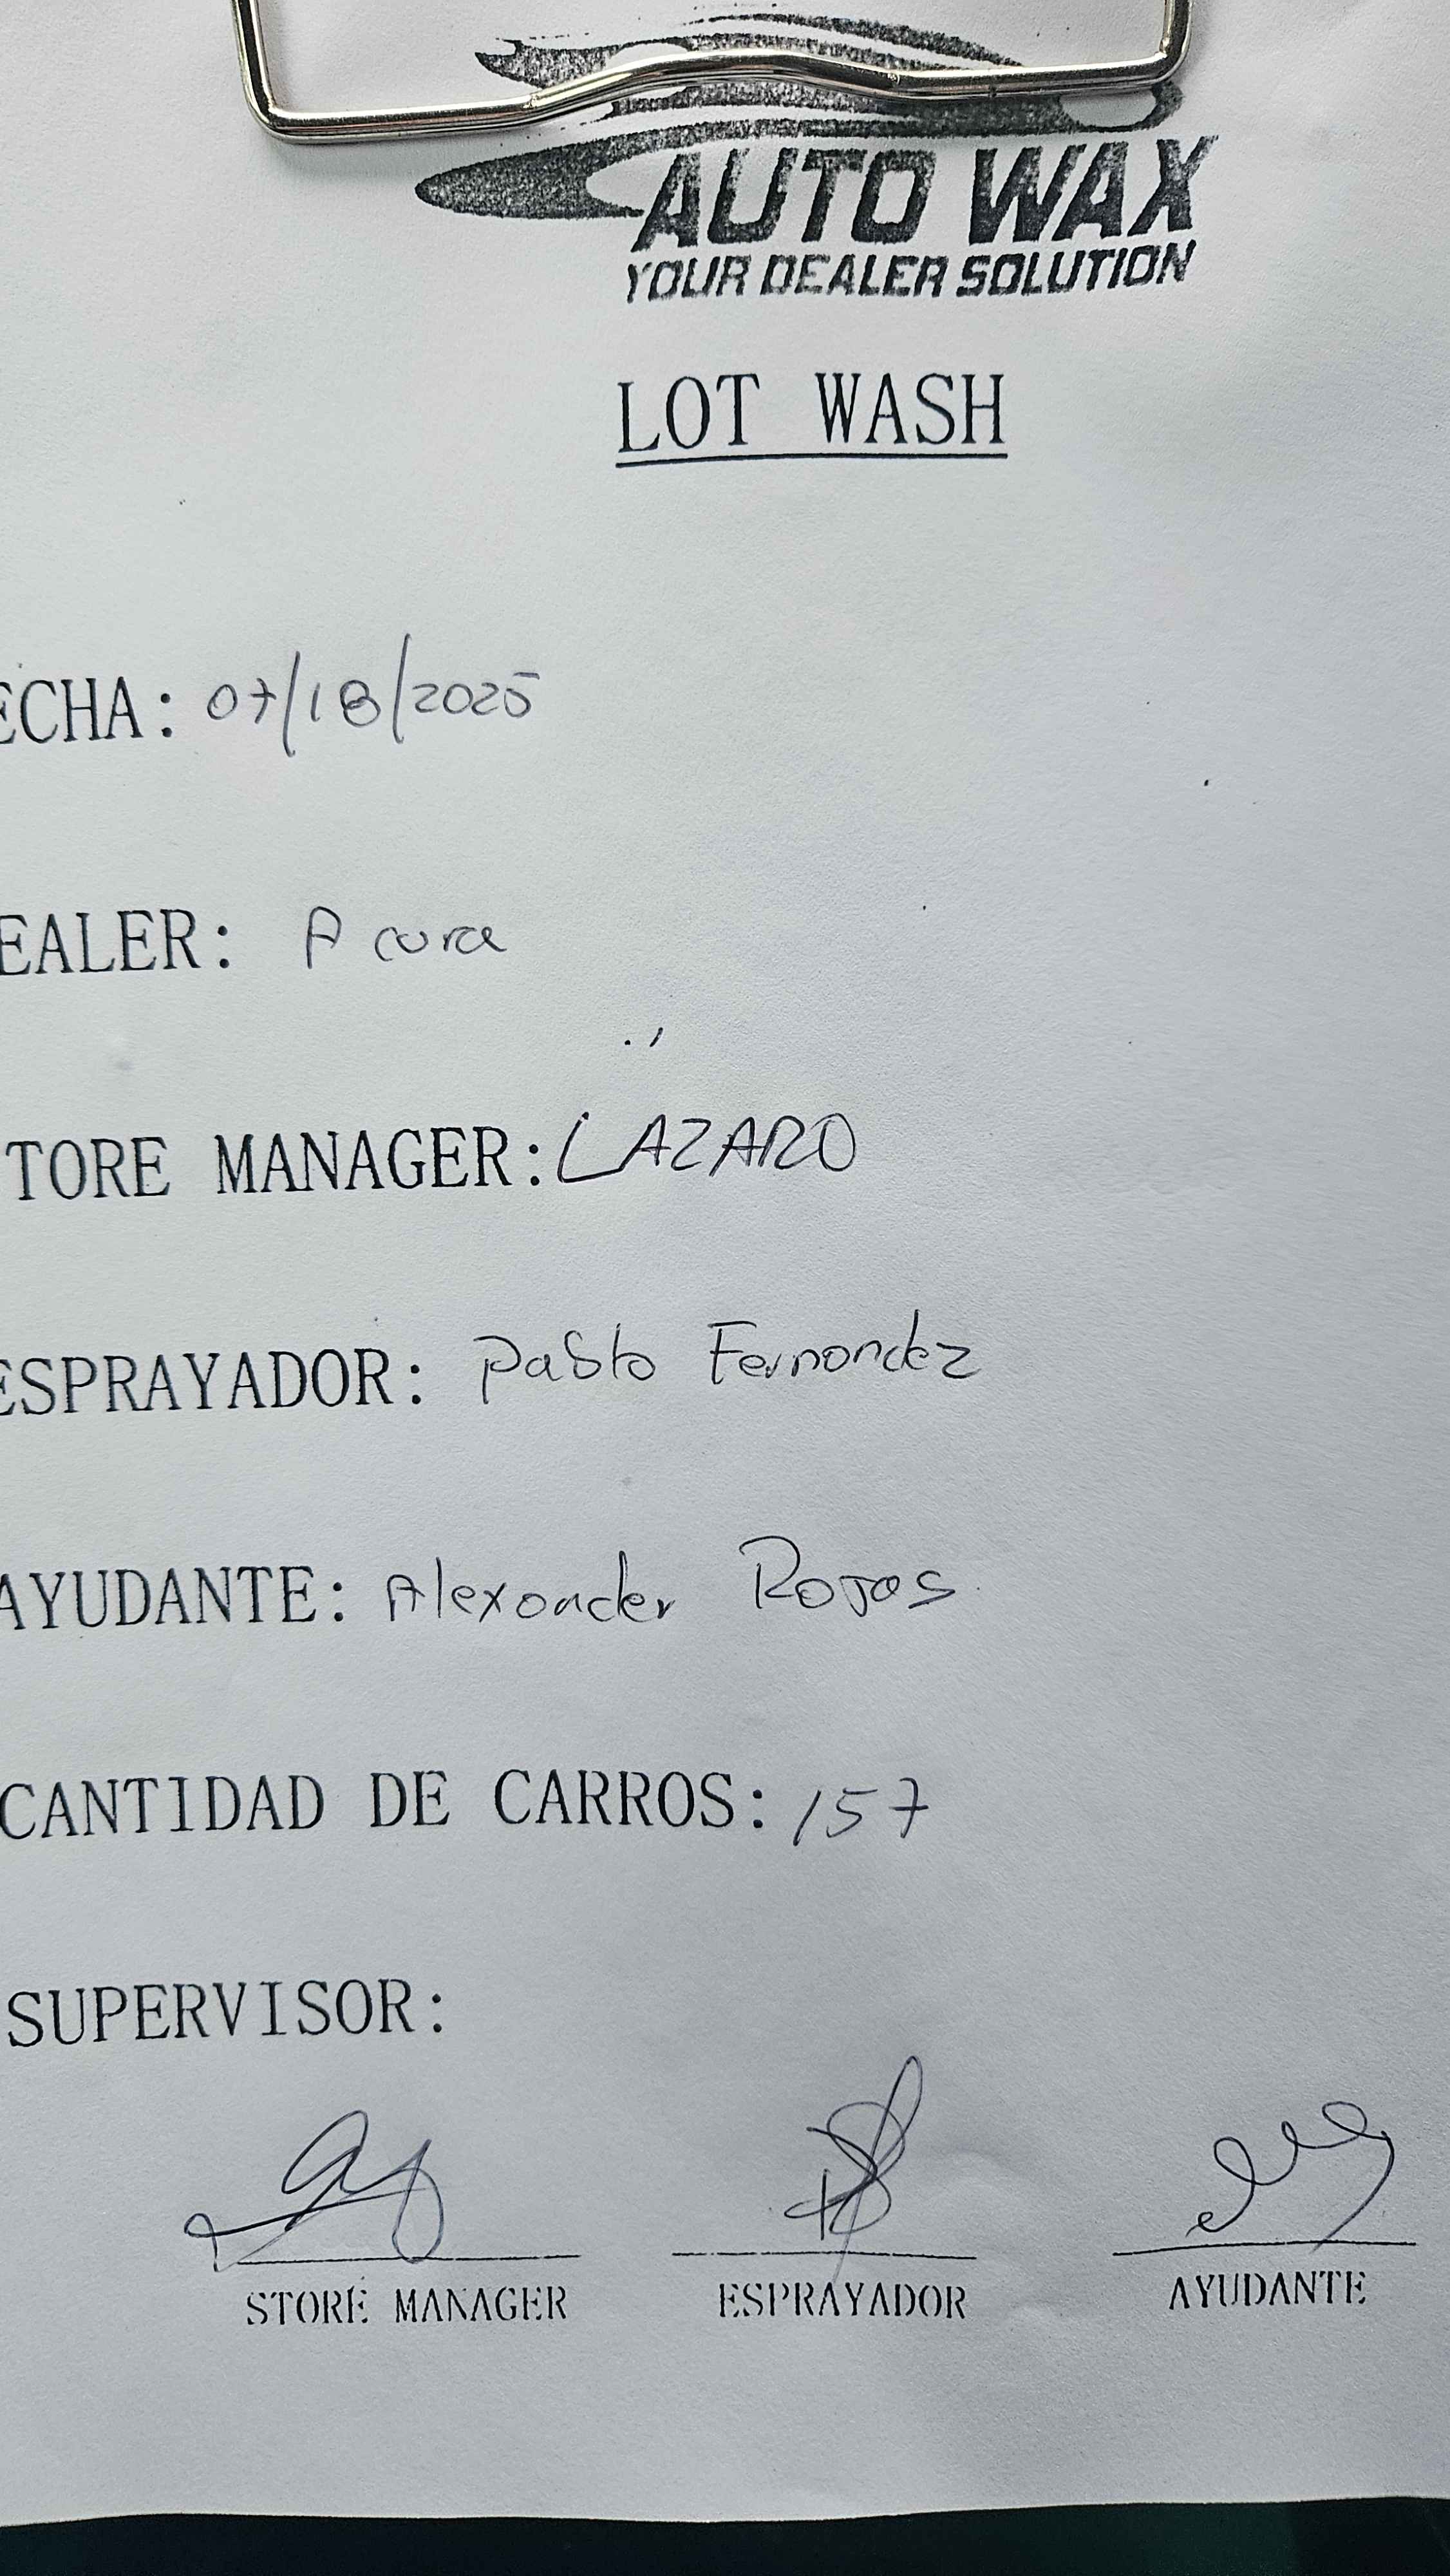 AUTO WAX
YOUR DEALER SOLUTION
LOT WASH
ECHA: 07/18/2025
EALER: Acura
TORE MANAGER: LAZARO
ESPRAYADOR: Pablo Fernandez
AYUDANTE: Alexander Rojas
CANTIDAD DE CARROS: 157
SUPERVISOR:
STORE MANAGER ESPRAYADOR AYUDANTE